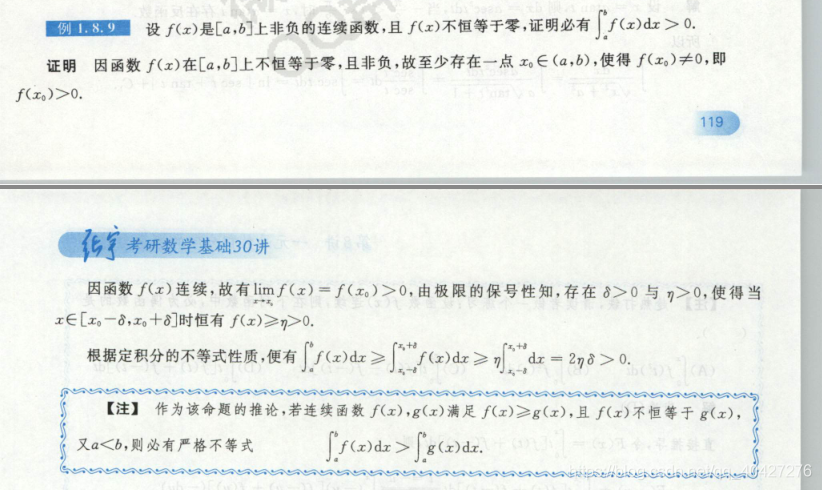 例1.8.9 设 f(x)是[a,b]上非负的连续函数,且 f(x)不恒等于零,证明必有∫_a^b f(x)dx>0.
证明 因函数 f(x)在[a,b]上不恒等于零,且非负,故至少存在一点 x₀∈(a,b),使得 f(x₀)≠0,即
f(x₀)>0.
119
张宇 考研数学基础30讲
因函数 f(x)连续,故有 lim_{x→x₀} f(x)=f(x₀)>0,由极限的保号性知,存在 δ>0 与 η>0,使得当
x∈[x₀-δ,x₀+δ]时恒有 f(x)≥η>0.
根据定积分的不等式性质,便有∫_a^b f(x)dx≥∫_{x₀-δ}^{x₀+δ} f(x)dx≥η∫_{x₀-δ}^{x₀+δ} dx=2ηδ>0.
【注】 作为该命题的推论,若连续函数 f(x),g(x)满足 f(x)≥g(x),且 f(x)不恒等于 g(x),
又a<b,则必有严格不等式 ∫_a^b f(x)dx>∫_a^b g(x)dx.